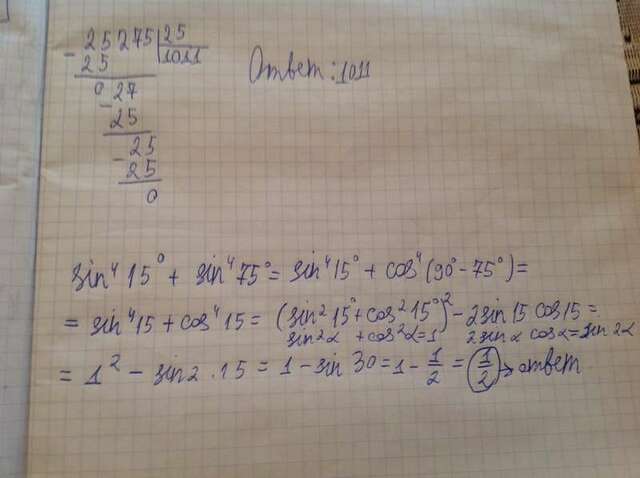 - 25275|25
25 1011
0 27
- 25
- 25
25
0
Ответ: 1011
sin⁴ 15° + sin⁴ 75° = sin⁴ 15° + cos⁴ (90° - 75°) =
= sin⁴ 15 + cos⁴ 15 = (sin² 15° + cos² 15°)² - 2 sin 15 cos 15 =
sin² α + cos² α = 1 2 sin α cos α = sin 2α
= 1² - sin 2 · 15 = 1 - sin 30 = 1 - 1/2 = 1/2 → ответ